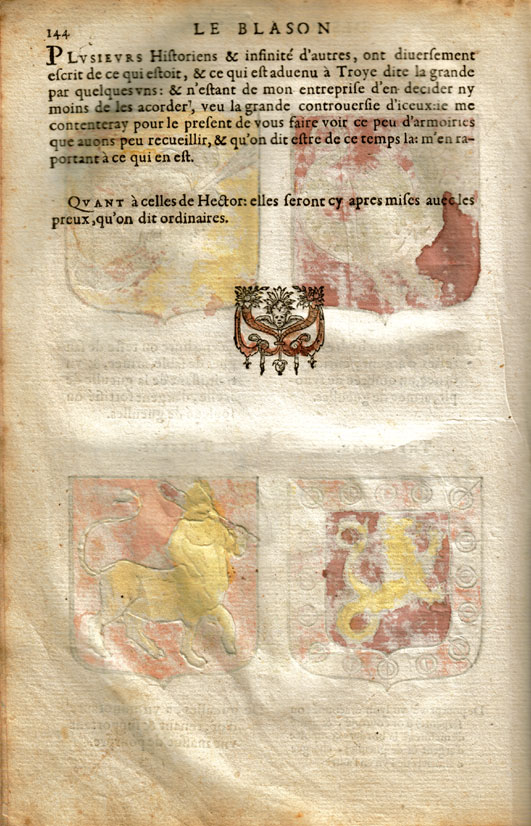 144
LE BLASON
PLVSIEVRS Historiens & infinité d'autres, ont diuersement
escrit de ce qui estoit, & ce qui est aduenu à Troye dite la grande
par quelques vns: & n'estant de mon entreprise d'en decider ny
moins de les acorder, veu la grande controuersie d'iceux: ie me
contenteray pour le present de vous faire voir ce peu d'armoiries
que auons peu recueillir, & qu'on dit estre de ce temps la: m'en ra-
portant à ce qui en est.
QVANT à celles de Hector: elles seront cy apres mises auec les
preux, qu'on dit ordinaires.